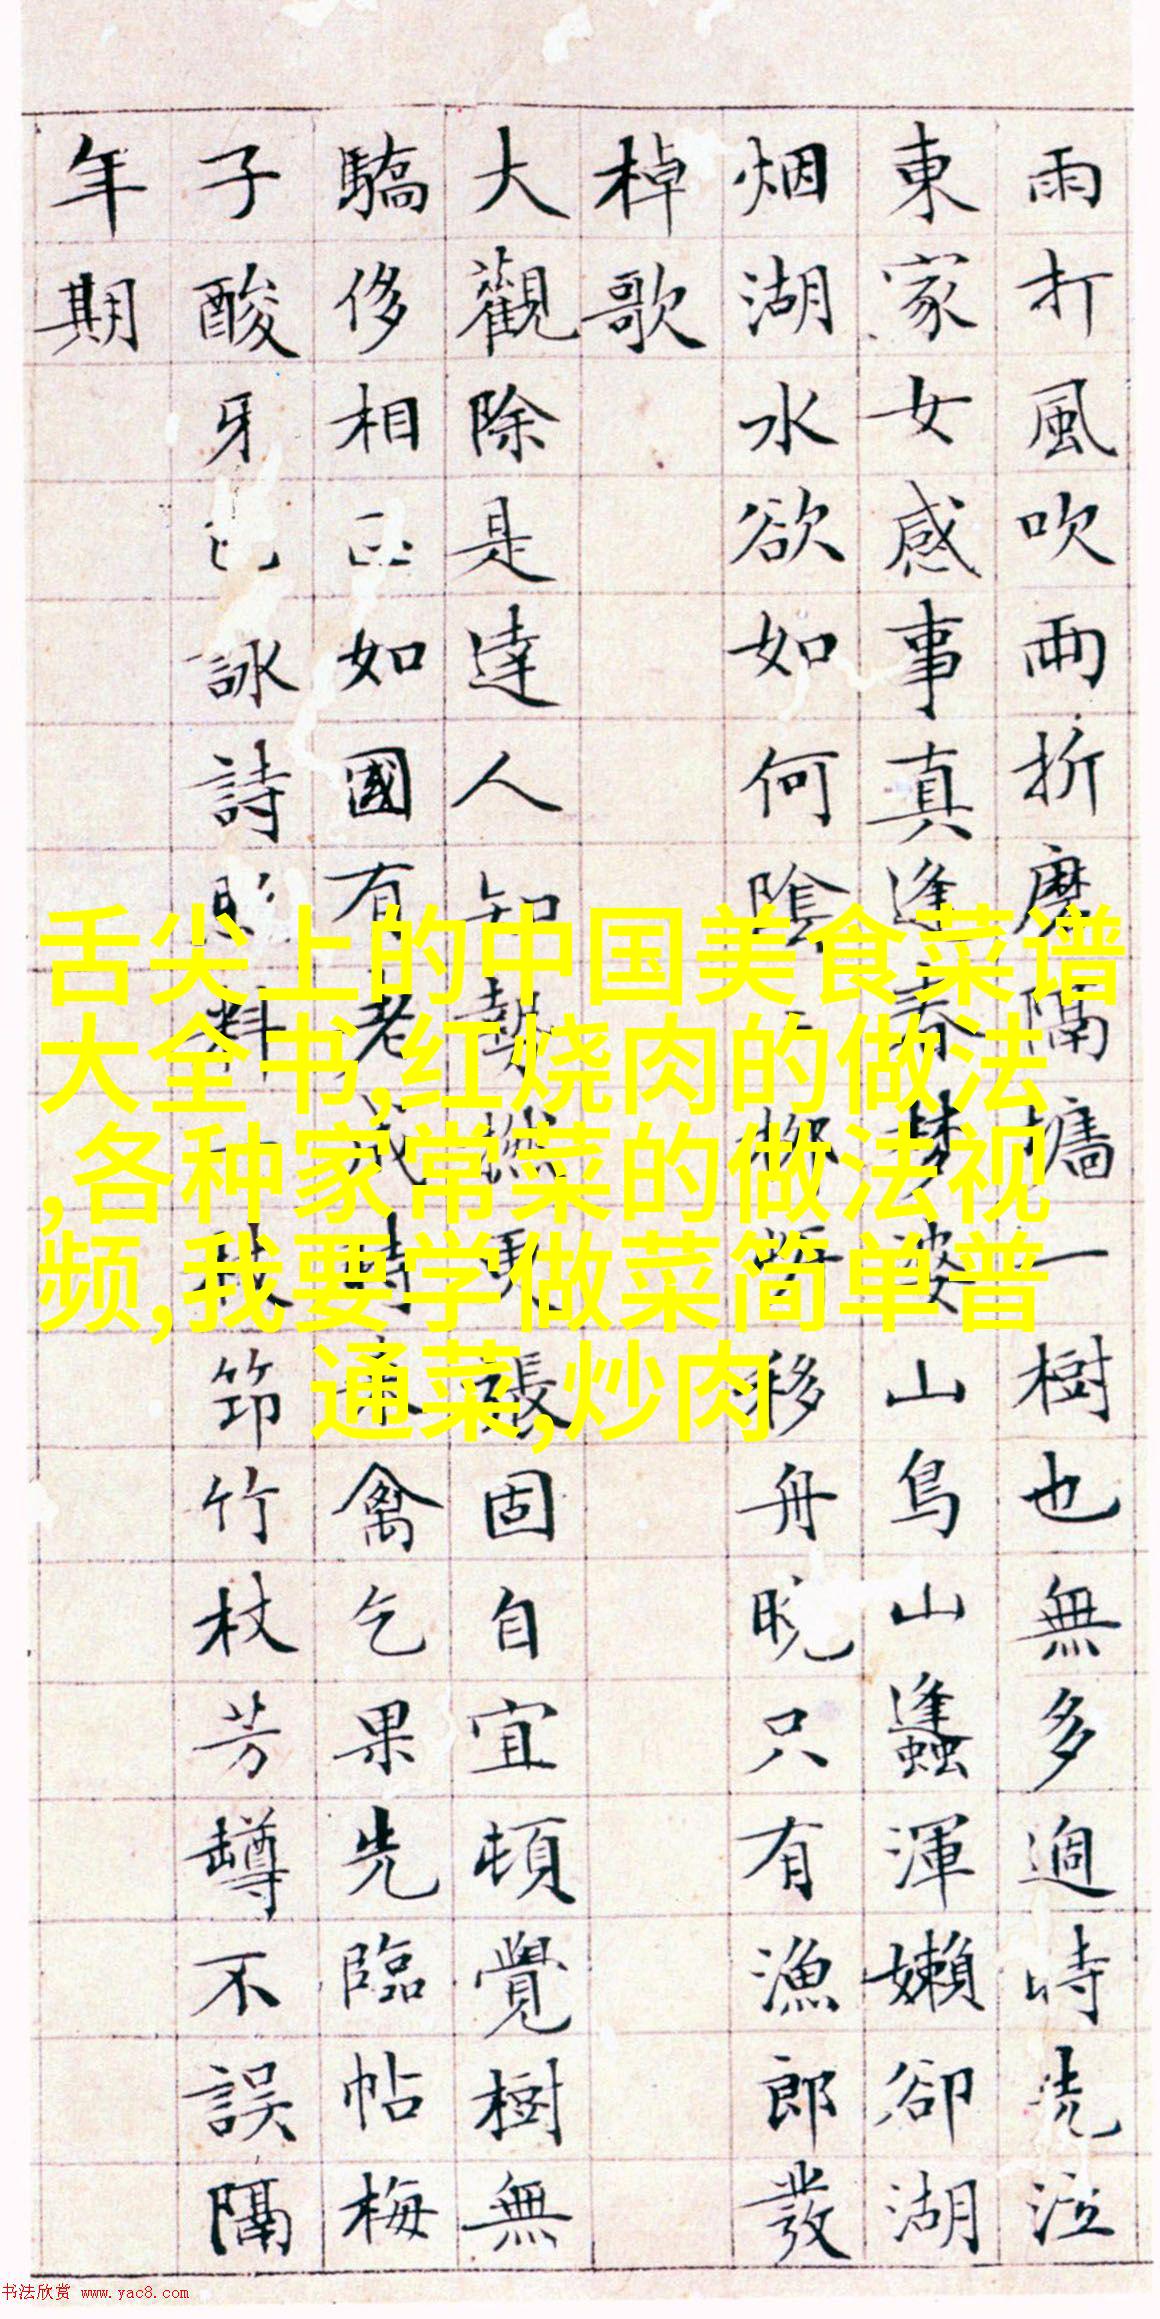 雨打風吹兩折磨隔牆一樹也無多過時洗泣
東家女感事真逢春夢婆山鳥山蠭渾嬾卻湖
烟湖水欲如何陰柳移舟晚只有漁郎發
棹歌
大觀除是達人知勢張固自宜頓覺樹無
驕侈相如國有老成時來禽乞果先臨帖梅
子酸牙詠詩料秋筇竹杖芳罇不誤隔
年期
舌尖上的中国美食菜谱
大全书,红烧肉的做法
,各种家常菜的做法视
频,我要学做菜简单普
通菜,炒肉
书法欣赏 www.yac8.com